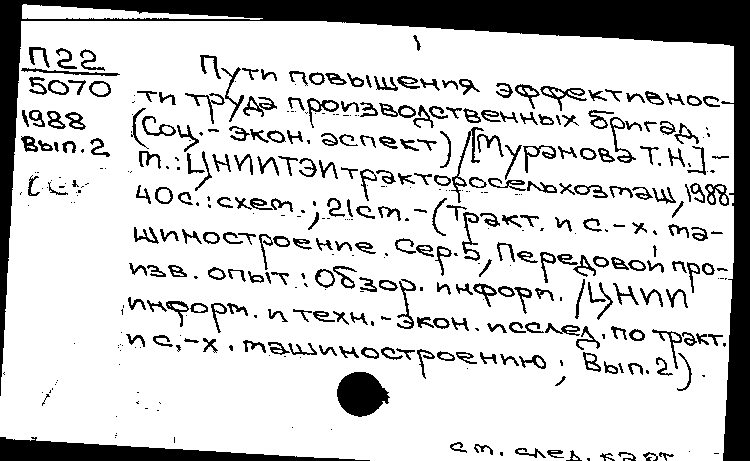 П22
5070
1988
Вып. 2
Пути повышения эффективнос-
ти труда производственных бригад:
(Соц.- экон. аспект) / [Муранова Т.Н.]. -
М.: ЦНИИТЭИтракторосельхозмаш, 1988.
40с.: схем.; 21см. - (Тракт. и с.-х. ма-
шиностроение. Сер. 5, Передовой про-
изв. опыт: Обзор. информ. / ЦНИИ
информ. и техн.-экон. исслед. по тракт.
и с.-х. машиностроению; Вып. 2).
см. след. карт